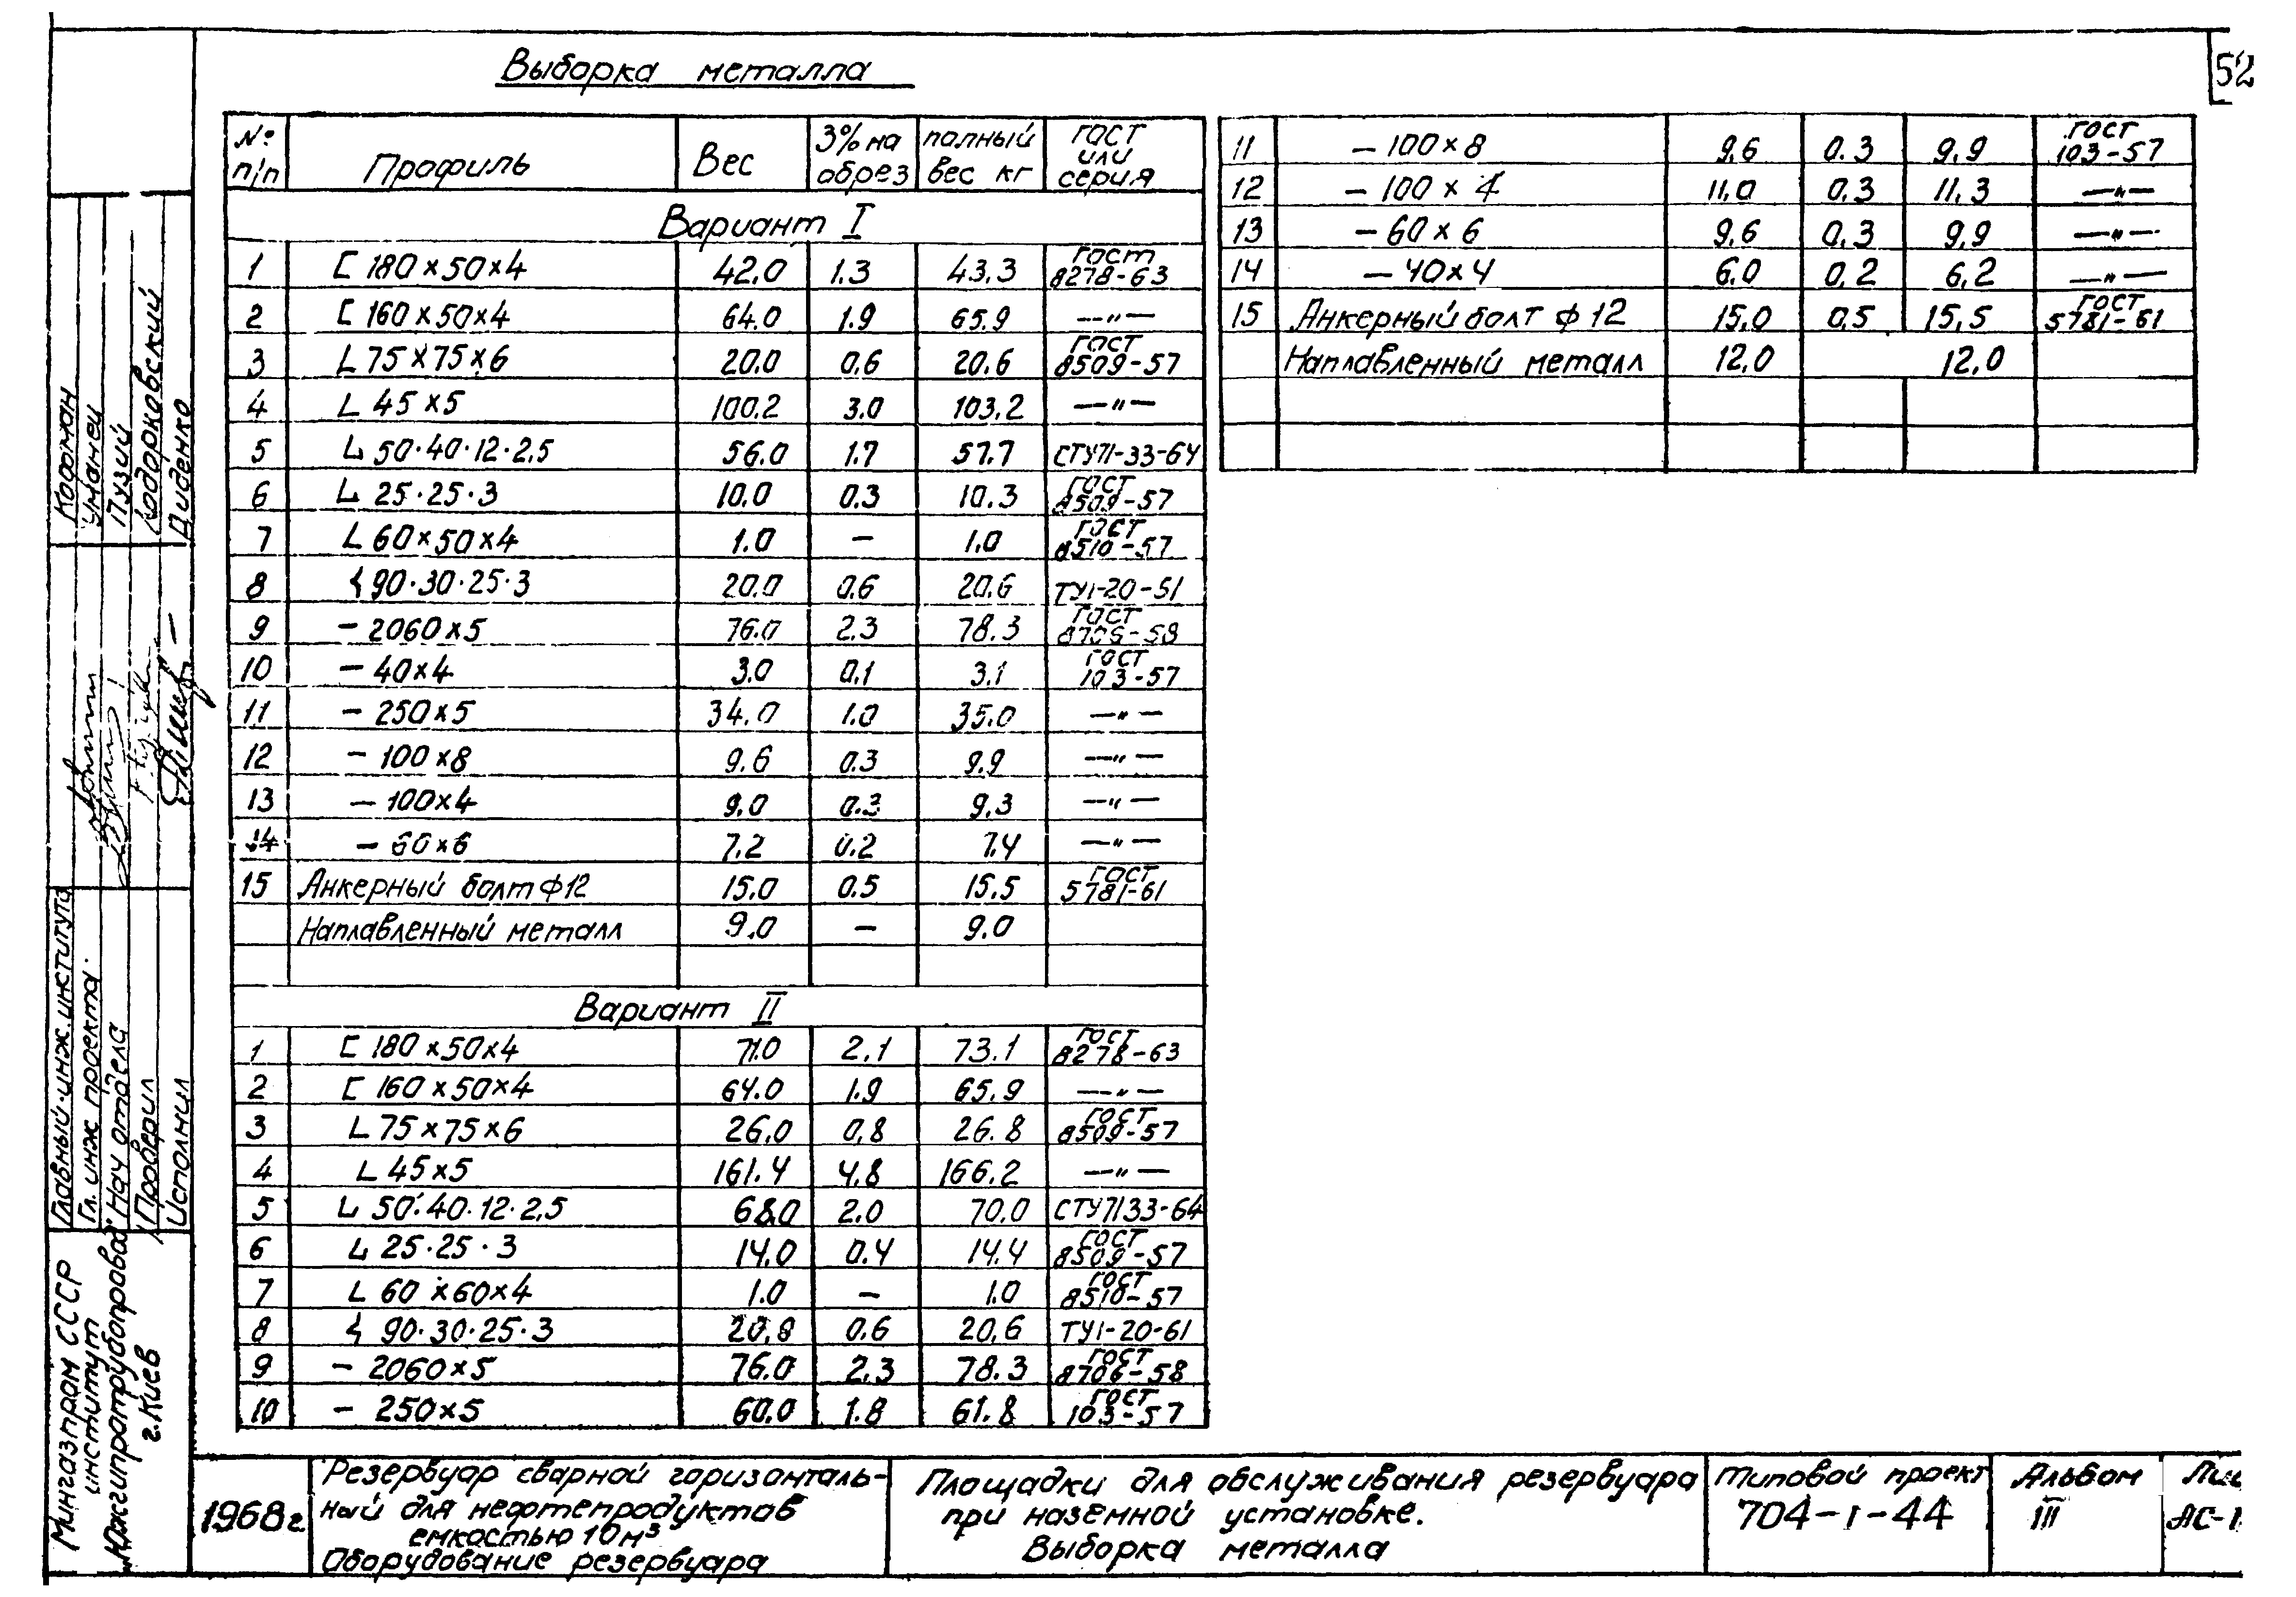 52
Выборка металла
№ п/п Профиль Вес 3% на обрез полный вес кг ГОСТ или серия
Вариант I
1 [ 180×50×4 42.0 1.3 43.3 ГОСТ 8278-63
2 [ 160×50×4 64.0 1.9 65.9 —„—
3 L 75×75×6 20.0 0.6 20.6 ГОСТ 8509-57
4 L 45×5 100.2 3.0 103.2 —„—
5 L 50·40·12·2,5 56.0 1.7 57.7 СТУ71-33-64
6 L 25·25·3 10.0 0.3 10.3 ГОСТ 8509-57
7 L 60×50×4 1.0 — 1.0 ГОСТ 8510-57
8 90·30·25·3 20.0 0.6 20.6 ТУ1-20-51
9 — 2060×5 76.0 2.3 78.3 ГОСТ 8706-58
10 — 40×4 3.0 0.1 3.1 ГОСТ 103-57
11 — 250×5 34.0 1.0 35.0 —„—
12 — 100×8 9.6 0.3 9.9 —„—
13 — 100×4 9.0 0.3 9.3 —„—
14 — 60×6 7.2 0.2 7.4 —„—
15 Анкерный болт ф12 15.0 0.5 15.5 ГОСТ 5781-61
Наплавленный металл 9.0 — 9.0
Вариант II
1 [ 180×50×4 71.0 2.1 73.1 ГОСТ 8278-63
2 [ 160×50×4 64.0 1.9 65.9 —„—
3 L 75×75×6 26.0 0,8 26.8 ГОСТ 8509-57
4 L 45×5 161.4 4.8 166.2 —„—
5 L 50·40·12·2,5 68.0 2.0 70.0 СТУ7133-64
6 L 25·25·3 14.0 0.4 14.4 ГОСТ 8509-57
7 L 60×60×4 1.0 — 1.0 ГОСТ 8510-57
8 90·30·25·3 20,8 0.6 20,6 ТУ1-20-61
9 — 2060×5 76.0 2,3 78.3 ГОСТ 8706-58
10 — 250×5 60.0 1.8 61.8 ГОСТ 103-57
11 — 100×8 9,6 0.3 9.9 ГОСТ 103-57
12 — 100×4 11,0 0,3 11,3 —„—
13 — 60×6 9,6 0,3 9,9 —„—
14 — 40×4 6.0 0,2 6,2 —„—
15 Анкерный болт ф12 15,0 0,5 15,5 ГОСТ 5781-61
Наплавленный металл 12,0 12,0
Главный инж. института Кофман
Гл. инж проекта Уманец
Нач отдела Пузий
Проверил
Исполнил Диденко
Мингазпром СССР
институт
Южгипротрубопровод
г.Киев
1968г.
Резервуар сварной горизонталь-
ный для нефтепродуктов
емкостью 10м³
Оборудование резервуара
Площадки для обслуживания резервуара
при наземной установке.
Выборка металла
Типовой проект
704-1-44
Альбом
III
Лис
АС-1